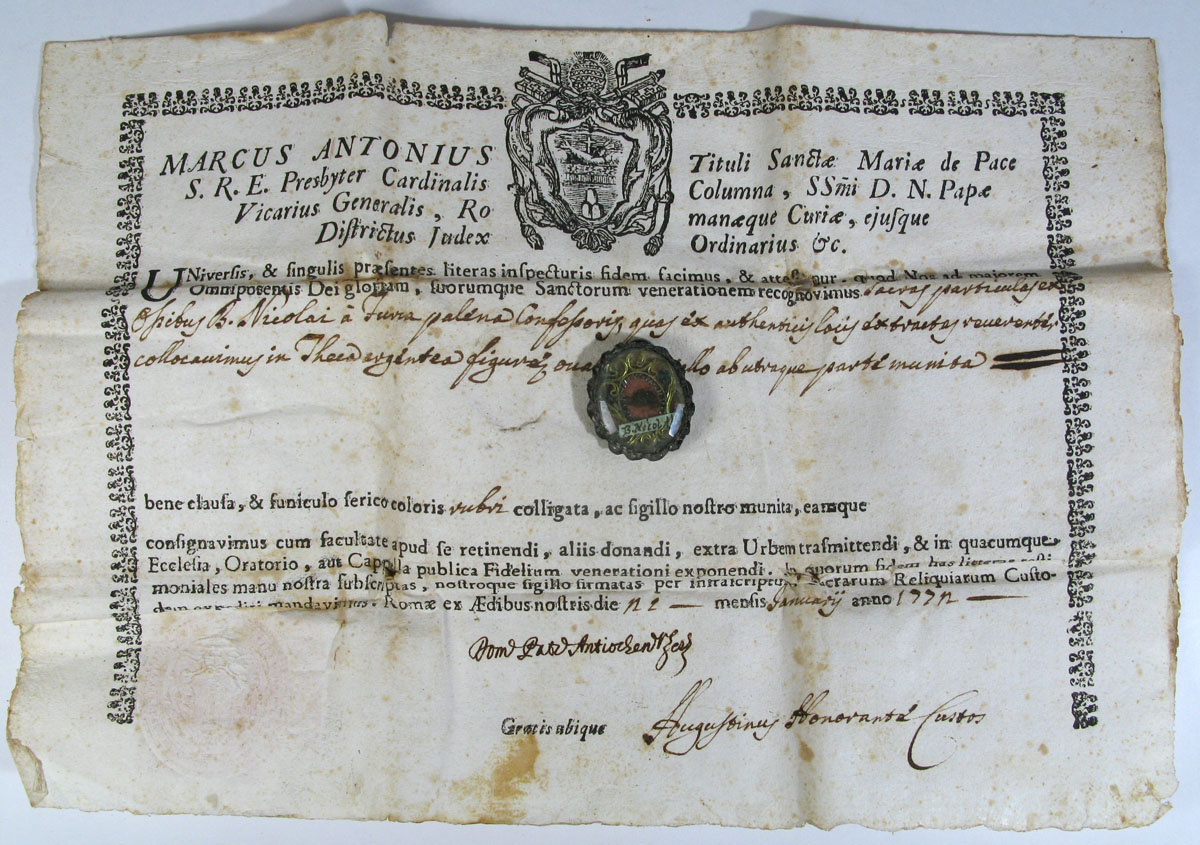 MARCUS ANTONIUS Tituli Sanctæ Mariæ de Pace
S. R. E. Presbyter Cardinalis Columna, SSm̃i D. N. Papæ
Vicarius Generalis, Ro manæque Curiæ, ejusque
Districtus Judex Ordinarius &c.
UNiversis, & singulis præsentes literas inspecturis fidem facimus, & quod Nos ad majorem
Omnipotentis Dei gloriam, suorumque Sanctorum venerationem recognovimus sacras particulas ex
Ossibus B. Nicolai a Furca palena Confessoris, quas ex authenticis locis extractas reverenter
collocavimus in Theca argentea figuræ ab utraque parte munita
B. Nicol
bene clausa, & funiculo serico coloris rubri colligata, ac sigillo nostro munita, eamque
consignavimus cum facultate apud se retinendi, aliis donandi, extra Urbem trasmittendi, & in quacumque
Ecclesia, Oratorio, aut Cappella publica Fidelium venerationi exponendi. In quorum fidem has literas
moniales manu nostra subscriptas, nostroque sigillo firmatas per infrascriptum Sacrarum Reliquiarum Custo-
dem expediri mandavimus. Romæ ex Ædibus nostris die mensis Januarij anno
Antiochen
Gratis ubique Augustinus Honorante Custos